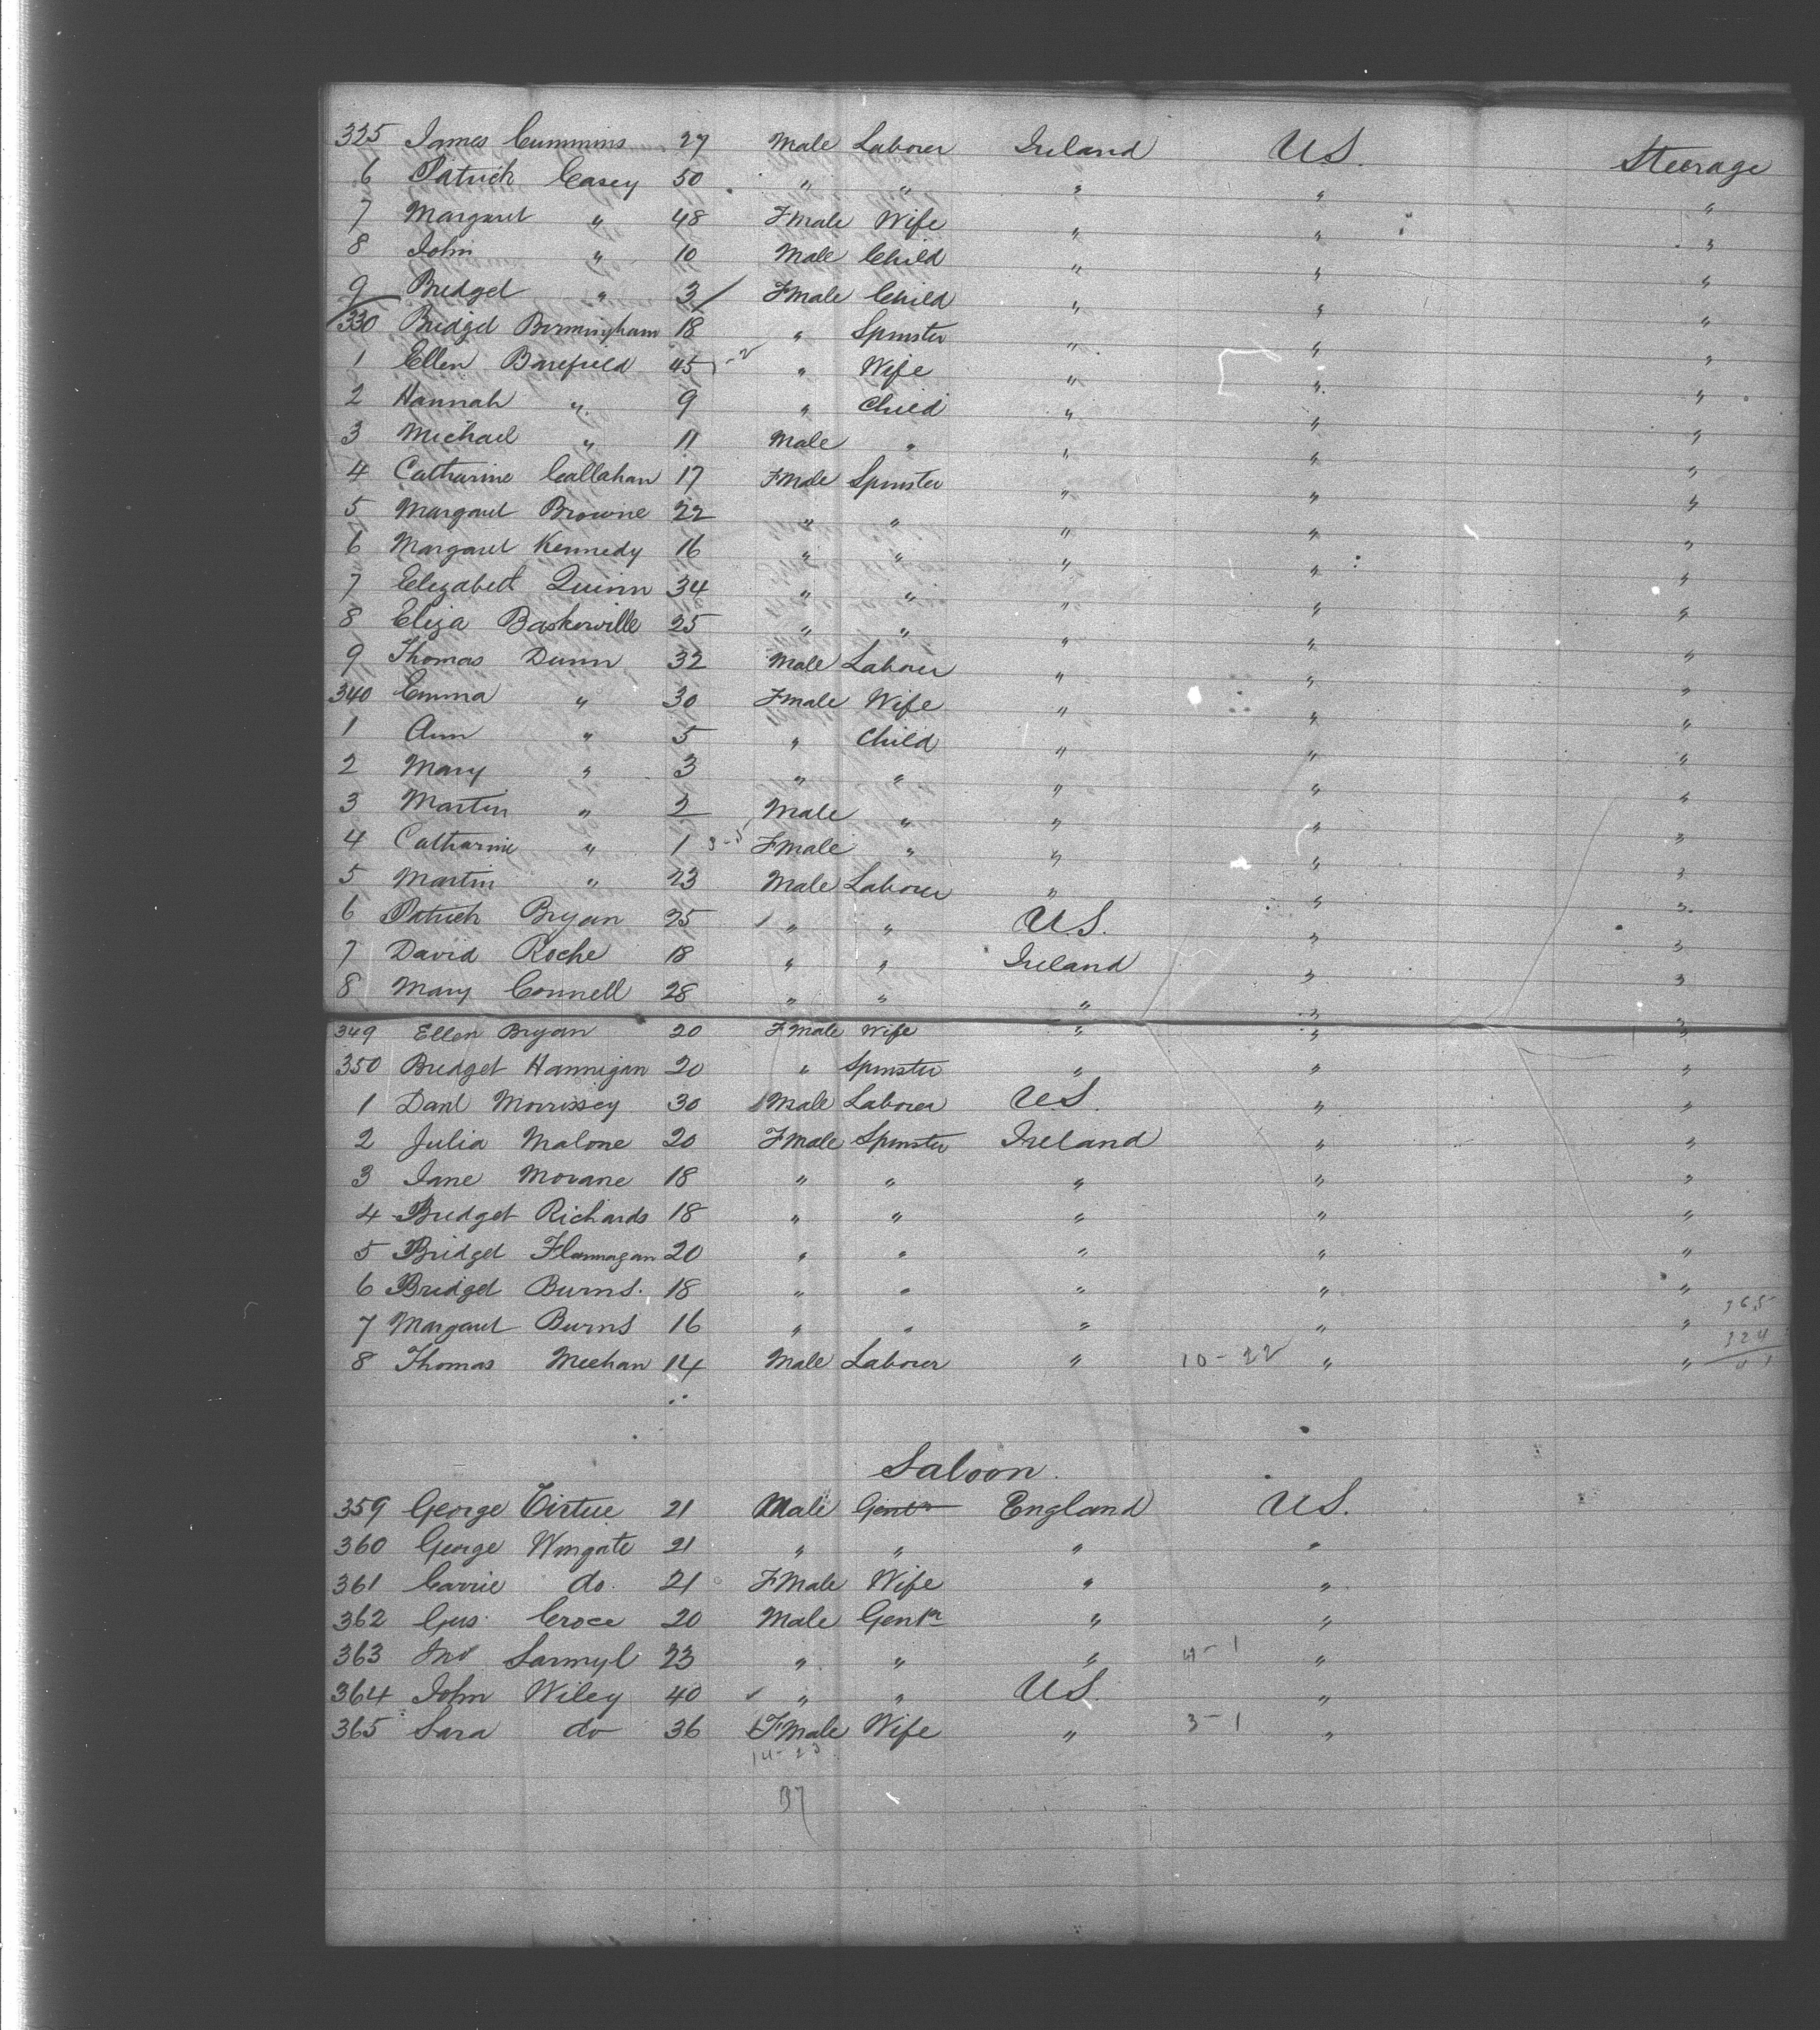 325 James Cummins 27 Male Laborer Ireland U.S. Steerage
6 Patrick Casey 50 " " " " "
7 Margaret " 48 Fmale Wife " " "
8 John " 10 Male Child " " "
9 Bridget " 3 Fmale Child " " "
330 Bridget Birmingham 18 " Spinster " " "
1 Ellen Barefield 45 " Wife " " "
2 Hannah " 9 " Child " " "
3 Michael " 11 Male " " " "
4 Catharine Callahan 17 Fmale Spinster " " "
5 Margaret Browne 22 " " " " "
6 Margaret Kennedy 16 " " " " "
7 Elizabeth Quinn 34 " " " " "
8 Eliza Baskerville 25 " " " " "
9 Thomas Dunn 32 Male Laborer " " "
340 Emma " 30 Fmale Wife " " "
1 Ann " 5 " Child " " "
2 Mary " 3 " " " " "
3 Martin " 2 Male " " " "
4 Catharine " 1 Fmale " " " "
5 Martin " 23 Male Laborer " " "
6 Patrick Bryan 25 " " U.S. " "
7 David Roche 18 " " Ireland " "
8 Mary Connell 28 " " " " "
349 Ellen Bryan 20 Fmale Wife " " "
350 Bridget Hannigan 20 " Spinster " " "
1 Danl Morrissey 30 Male Laborer U.S. " "
2 Julia Malone 20 Fmale Spinster Ireland " "
3 Jane Morane 18 " " " " "
4 Bridget Richards 18 " " " " "
5 Bridget Flannagan 20 " " " " "
6 Bridget Burns. 18 " " " " "
365
7 Margaret Burns 16 " " " " "
324
8 Thomas Meehan 14 Male Laborer " 10-22 " "
Saloon
359 George Virtue 21 Male Gentn England U.S.
360 George Wingate 21 " " " "
361 Carrie do. 21 Fmale Wife " "
362 Gus. Croce 20 Male Gentn " "
363 Jno Sarmyl 23 " " " 4-1 "
364 John Wiley 40 " " U.S. "
365 Sara do 36 Fmale Wife " 3-1 "
14-23
37